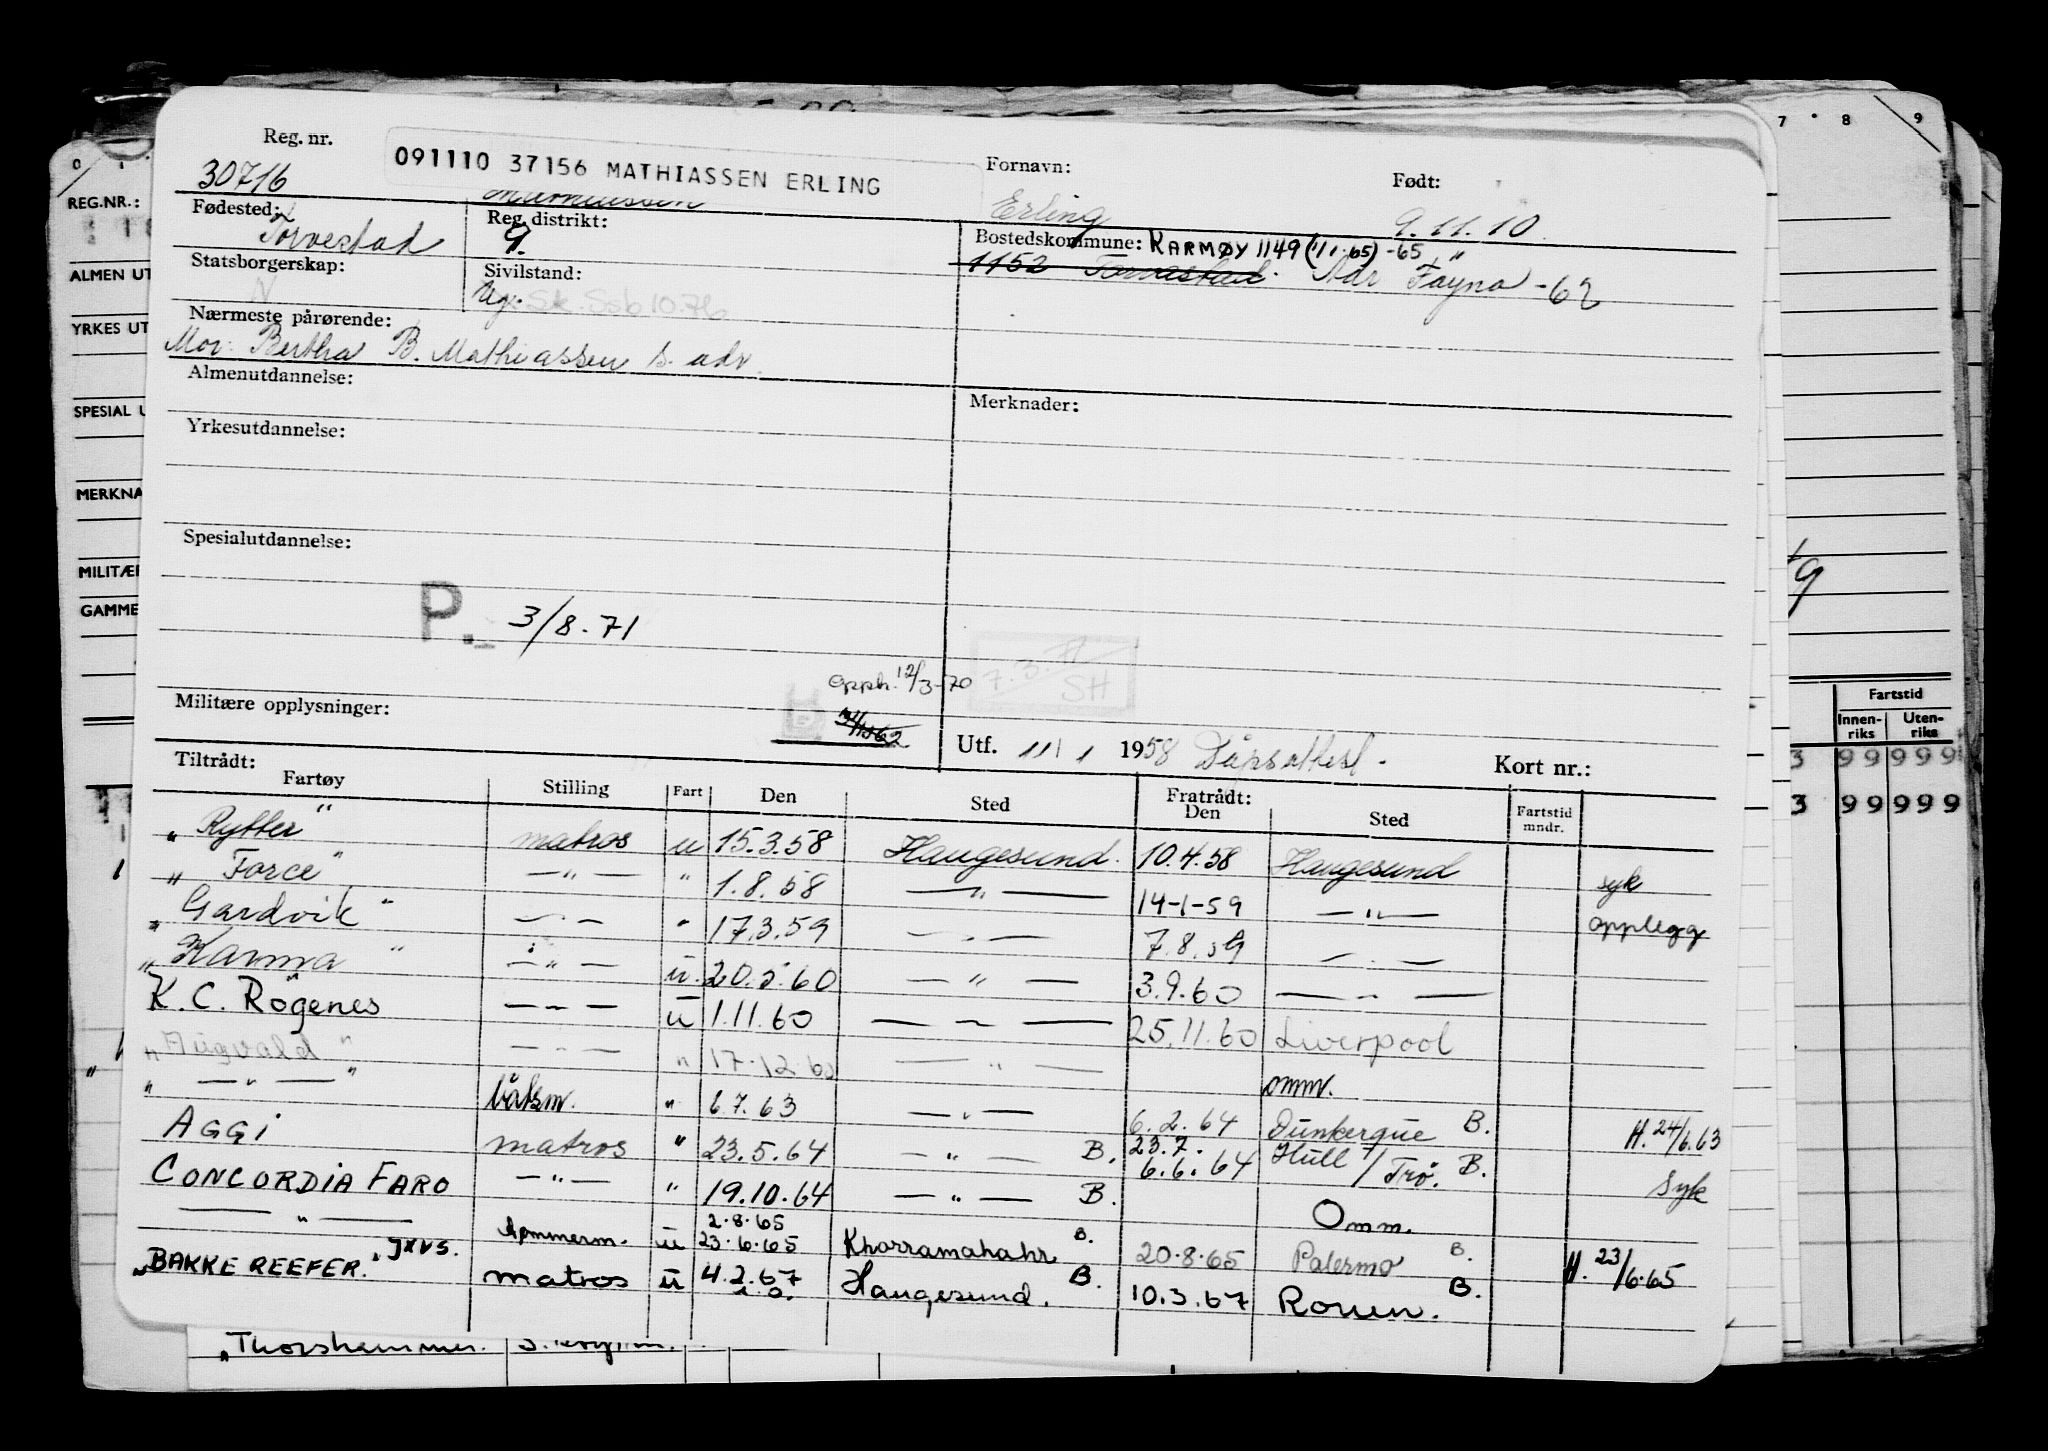 Reg. nr. 091110 37156 MATHIASSEN ERLING Fornavn: Født:
30716 Erling 9.11.10
Fødested: Reg. distrikt: Bostedskommune: KARMØY 1149 (1/1-65) -65
Torvestad 9. 1152 Torvestad. Adr Føyno -62
Statsborgerskap: Sivilstand:
N Ug. Sk. Ssb 10.76
Nærmeste pårørende:
Mor: Bertha B. Mathiassen s. adr.
Almenutdannelse: Merknader:
Yrkesutdannelse:
Spesialutdannelse:
P. 3/8.71
7.3.71
SH
Opph. 12/3-70
Militære opplysninger: Utf. 11/1 1958 Dåpsattest. Kort nr.:
Tiltrådt: Fratrådt:
Fartøy Stilling Fart Den Sted Den Sted Fartstid mndr.
"Rytter" matros u 15.3.58 Haugesund. 10.4.58 Haugesund syk
"Force" — " — " 1.8.58 — " — 14-1-59 — " — opplegg
"Gardvik" — " — " 17.3.59 — " — 7.8.59 — " —
"Karma" — " — u. 20.5.60 — " — 3.9.60 — " —
K. C. Rogenes — " — u 1.11.60 — " — 25.11.60 Liverpool
"Augvald" — " — " 17.12.60 — " — omm.
" — " — " båtsm. " 6.7.63 — " — 6.2.64 Dunkerque B. H. 24/6.63
AGGI matros " 23.5.64 — " — B. 23.7. 6.6.64 Hull / Trø. B. Syk
CONCORDIA FARO — " — " 19.10.64 — " — B. Omm.
— " — JXVS. tømmerm. u 2.8.65 23.6.65 Khorramshahr B. 20.8.65 Palermo B. H. 23/6.65
"BAKKE REEFER." matros u 4.2.67 Haugesund. B. 10.3.67 Rouen. B.
"Thorshammer.
REG.NR.:
ALMEN UT
YRKES UT
SPESIAL U
MERKNA
MILITÆR
GAMME
0 1 7 8 9
Fartstid
Innenriks Utenriks
3 9 9 9 9 9
3 9 9 9 9 9